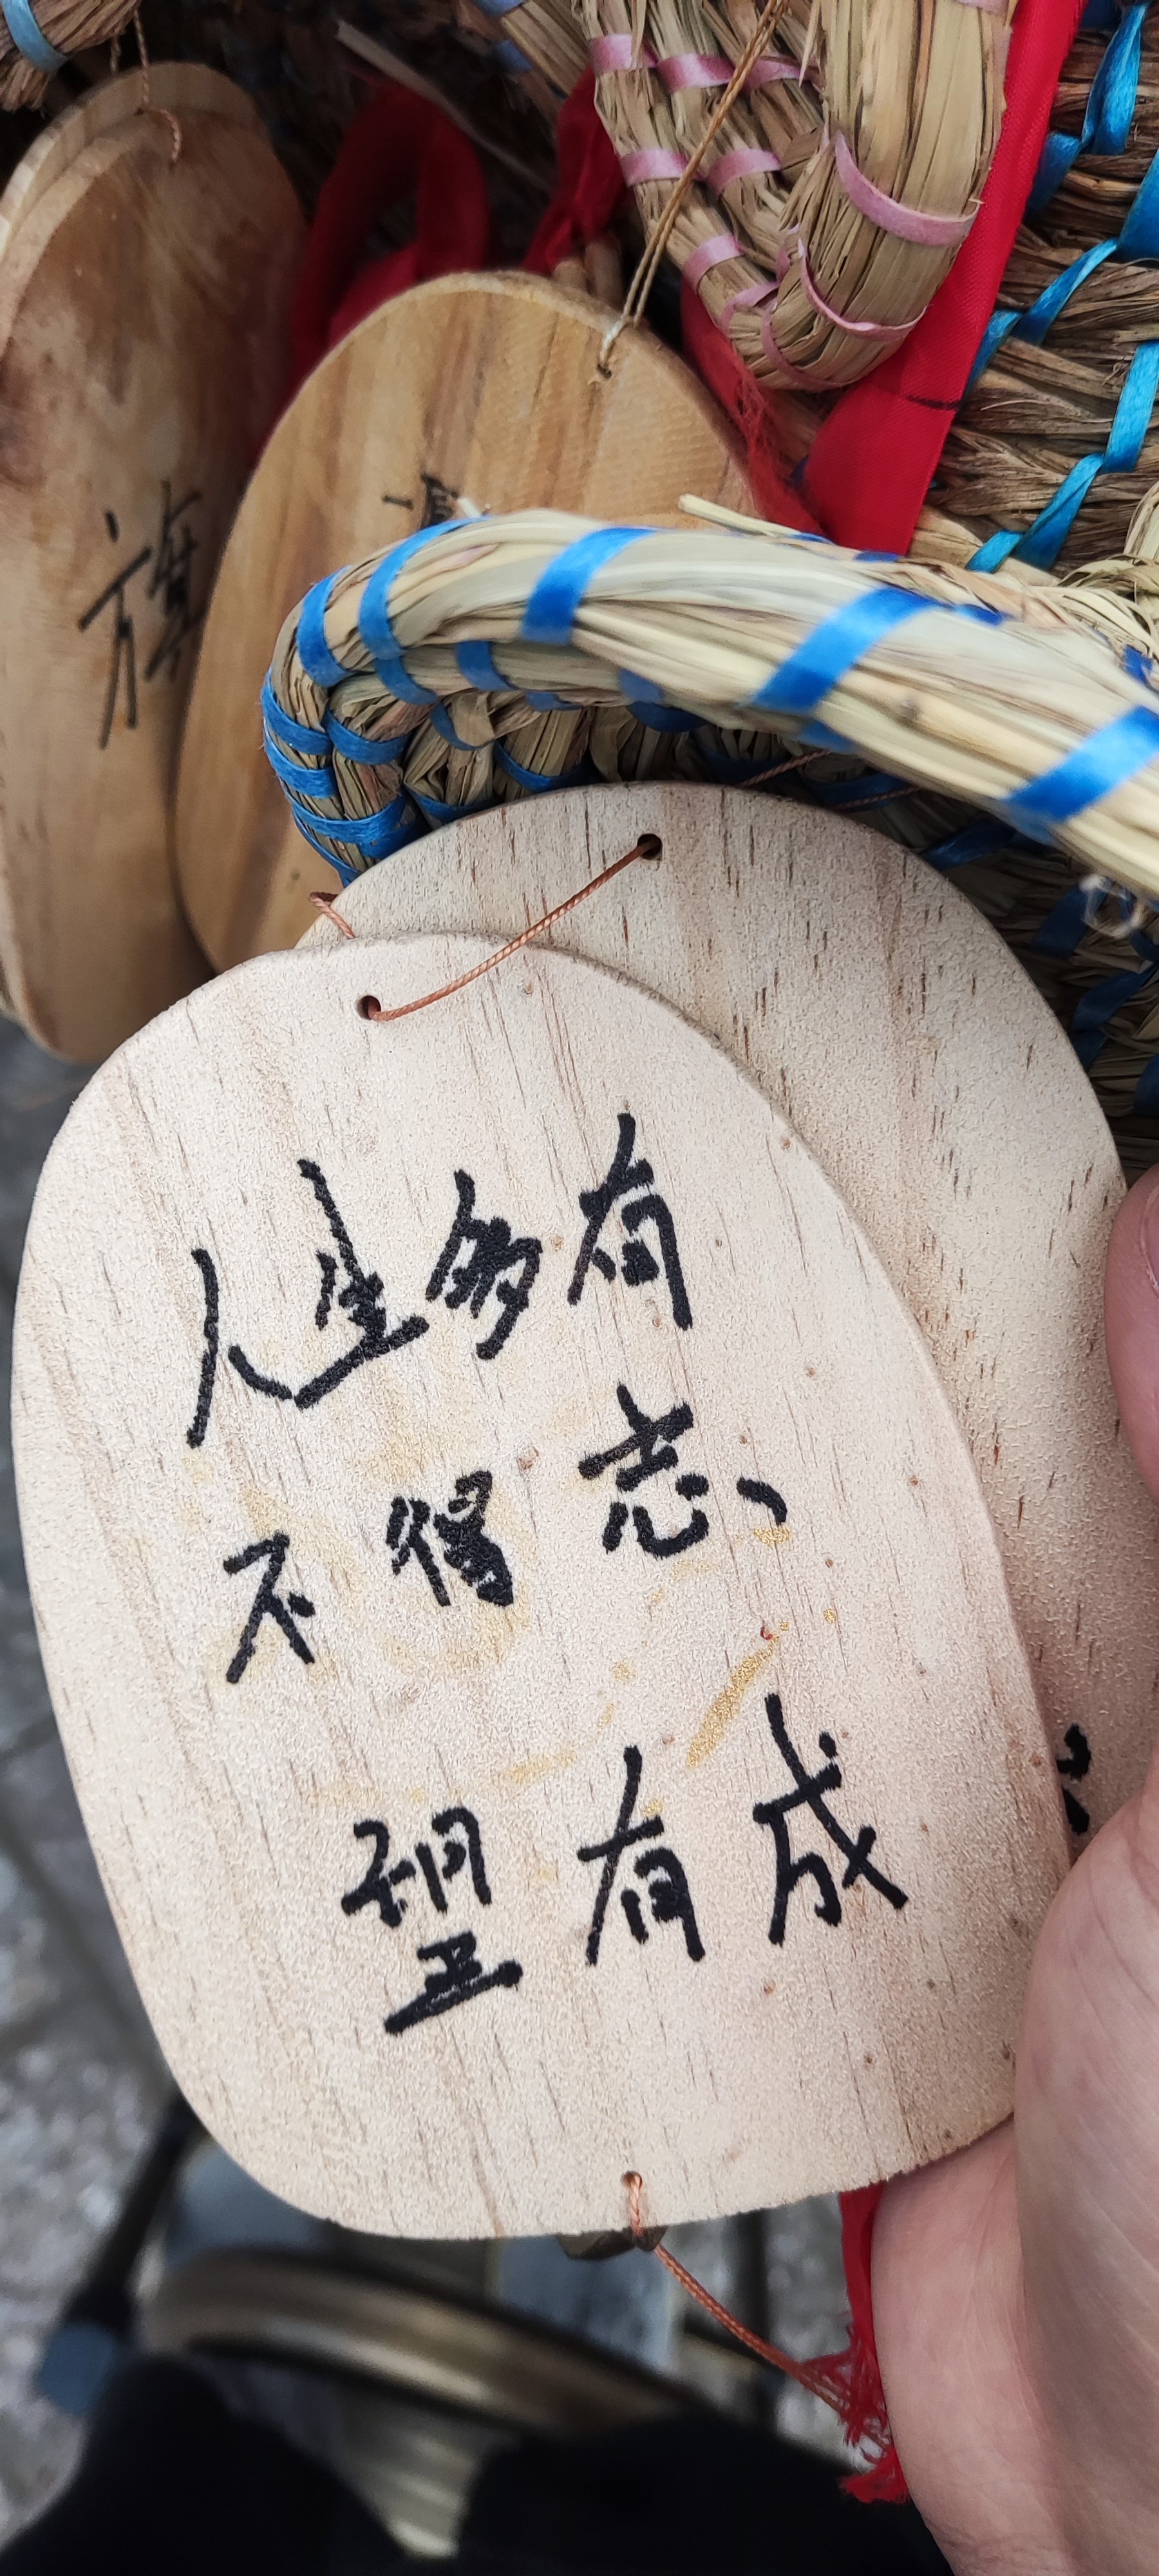 人生多有
不得志、
望有成
旗